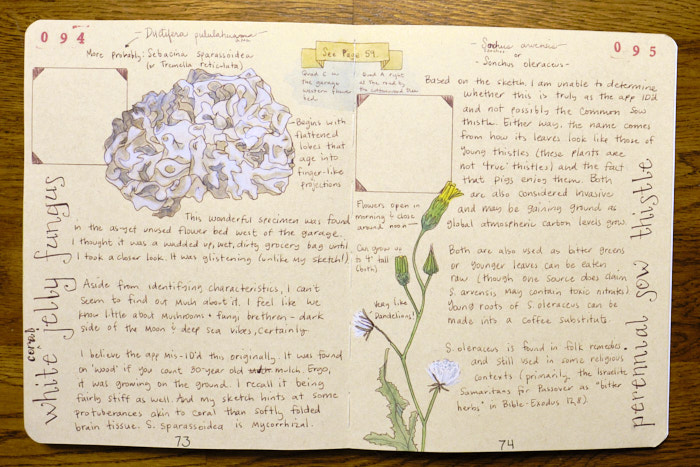 094
Ductifera pululahuana
More Probably: Sebacina sparassoidea
(or Tremella reticulata)
Begins with
flattened
lobes that
age into
finger-like
projections
This wonderful specimen was found
in the as-yet unused flower bed west of the garage.
I thought it was a wadded up, wet, dirty grocery bag until
I took a closer look. It was glistening (unlike my sketch!).
Aside from identifying characteristics, I can't
seem to find out much about it. I feel like we
know little about mushroom & fungi brethren - dark
side of the moon & deep sea vibes, certainly.
I believe the app mis-ID'd this originally. It was found
on 'wood' if you count 30-year old mulch. Ergo,
it was growing on the ground. I recall it being
fairly stiff as well. And my sketch hints at some
protuberances akin to coral than softly folded
brain tissue. S. sparassoidea is Mycorrhizal.
white jelly fungus
coral
73
See Page 59.
Quad E on
the garage
western flower
bed.
Quad A right
at the road by
the cottonwood tree
Sonchus arvensis
or
Sonchus oleraceus
095
Based on the sketch, I am unable to determine
whether this is truly as the app ID'd
and not possibly the Common Sow
thistle. Either way, the name comes
from how its leaves look like those of
young thistles (these plants are
not 'true' thistles) and the fact
that pigs enjoy them. Both
are also considered invasive
and may be gaining ground as
global atmospheric carbon levels grow.
Flowers open in
morning & close
around noon
Can grow up
to 4' tall
(both)
Very like
Dandelions!
Both are also used as bitter greens
or younger leaves can be eaten
raw (though one source does claim
S. arvensis may contain toxic nitrates).
Young roots of S. oleraceus can be
made into a coffee substitute.
S. oleraceus is found in folk remedies
and still used in some religious
contexts (primarily the Israelite
Samaritans for Passover as "bitter
herbs" in Bible-Exodus 12,8).
perennial sow thistle
74